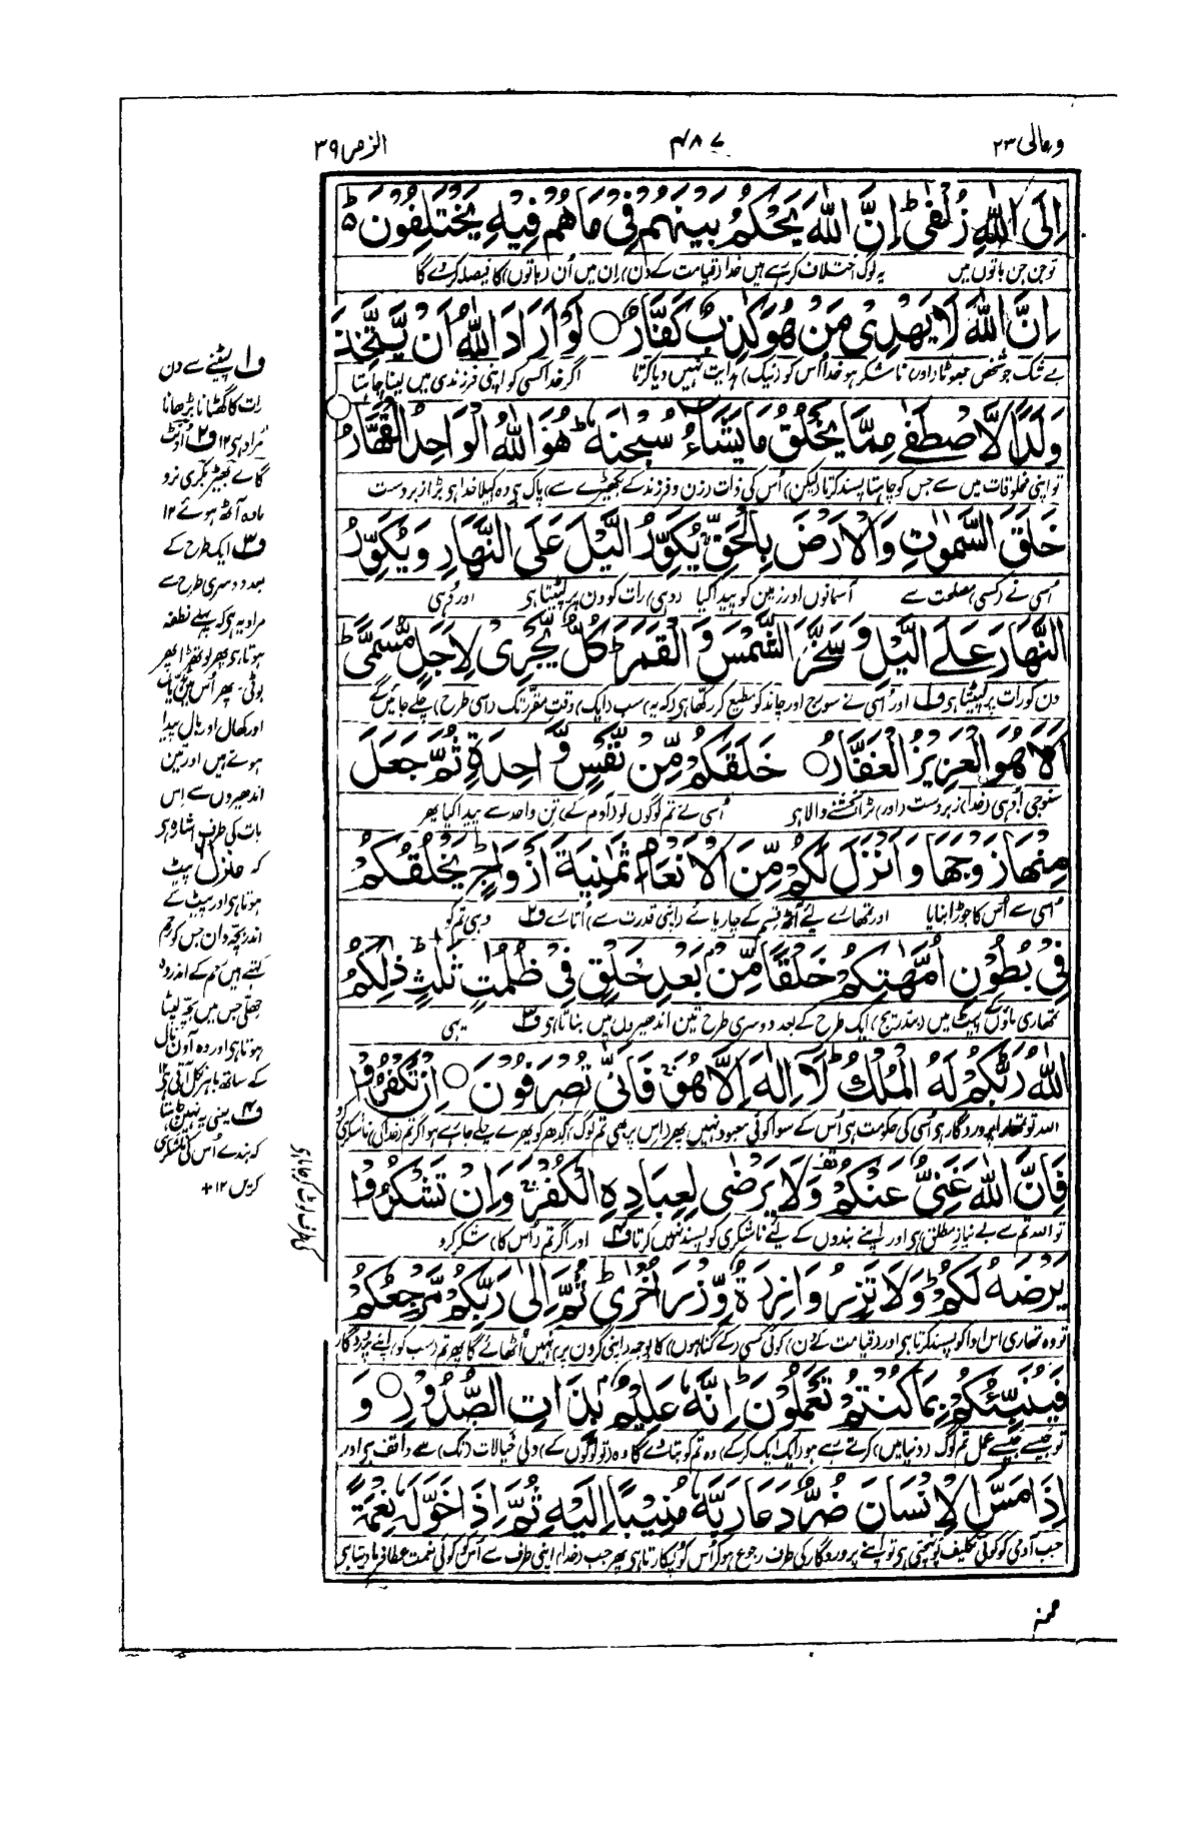 ومالی ۲۳
۴۸۷
الزمر ۳۹
اِلَى اللّٰهِ زُلْفٰىؕ اِنَّ اللّٰهَ یَحْكُمُ بَیْنَهُمْ فِیْ مَا هُمْ فِیْهِ یَخْتَلِفُوْنَ۬ؕ
تو جن جن باتوں میں یہ لوگ اختلاف کر رہے ہیں خدا (قیامت کے دن) ان میں اُن (باتوں) کا فیصلہ کر دے گا
اِنَّ اللّٰهَ لَا یَهْدِیْ مَنْ هُوَ كٰذِبٌ كَفَّارٌ○ لَوْ اَرَادَ اللّٰهُ اَنْ یَّتَّخِذَ
بے شک جو شخص جھوٹا (اور) ناشکر ہو خدا اُس کو (نیک) ہدایت نہیں دیا کرتا اگر خدا کسی کو اپنی فرزندی میں لینا چاہتا
وَلَدًا لَّاصْطَفٰى مِمَّا یَخْلُقُ مَا یَشَآءُ سُبْحٰنَهٗؕ هُوَ اللّٰهُ الْوَاحِدُ الْقَهَّارُ○
تو اپنی مخلوقات میں سے جس کو چاہتا پسند کرتا (لیکن) اُس کی ذات (زن و فرزند کے بکھیڑے سے) پاک ہی وہ اکیلا خدا ہی بڑا زبردست
خَلَقَ السَّمٰوٰتِ وَالْاَرْضَ بِالْحَقِّۚ یُكَوِّرُ الَّیْلَ عَلَى النَّهَارِ وَیُكَوِّرُ
اُسی نے (کسی) مصلحت سے آسمانوں اور زمین کو پیدا کیا (وہی) رات کو دن پر لپیٹتا ہی اور (وہی)
النَّهَارَ عَلَى الَّیْلِ وَسَخَّرَ الشَّمْسَ وَالْقَمَرَؕ كُلٌّ یَّجْرِیْ لِاَجَلٍ مُّسَمًّىؕ
دن کو رات پر لپیٹتا ہی ف۱ اور اُسی نے سورج اور چاند کو مطیع کر رکھا ہی (کہ یہ) سب (ایک) وقت مقرر تک (اسی طرح) چلے جائیں گے
اَلَا هُوَ الْعَزِیْزُ الْغَفَّارُ○ خَلَقَكُمْ مِّنْ نَّفْسٍ وَّاحِدَةٍ ثُمَّ جَعَلَ
سنو جی! وہی (خدا) زبردست (اور) بڑا بخشنے والا ہی اُسی نے تم لوگوں کو (آدم کے) تن واحد سے پیدا کیا پھر
مِنْهَا زَوْجَهَا وَاَنْزَلَ لَكُمْ مِّنَ الْاَنْعَامِ ثَمٰنِیَةَ اَزْوَاجٍؕ یَخْلُقُكُمْ
اُسی سے اُس کا جوڑا بنایا اور تمھارے لیے آٹھ قسم کے چارپائے (اپنی قدرت سے) اُتارے ف۲ وہی تم کو
فِیْ بُطُوْنِ اُمَّهٰتِكُمْ خَلْقًا مِّنْۢ بَعْدِ خَلْقٍ فِیْ ظُلُمٰتٍ ثَلٰثٍؕ ذٰلِكُمُ
تمھاری ماؤں کے پیٹ میں (بتدریج) ایک طرح کے بعد دوسری طرح تین اندھیروں میں بناتا ہی ف۳ یہی
اللّٰهُ رَبُّكُمْ لَهُ الْمُلْكُؕ لَاۤ اِلٰهَ اِلَّا هُوَۚ فَاَنّٰى تُصْرَفُوْنَ○ اِنْ تَكْفُرُوْا
اللہ تو تمھارا پروردگار ہی اُسی کی حکومت ہی اُس کے سوا کوئی معبود نہیں پھر (اس پر بھی) تم لوگ کدھر کو پھرے چلے جا رہے ہو اگر تم (خدا کی) ناشکری کرو
فَاِنَّ اللّٰهَ غَنِیٌّ عَنْكُمْ وَلَا یَرْضٰى لِعِبَادِهِ الْكُفْرَۚ وَاِنْ تَشْكُرُوْا
تو اللہ تم سے بے نیاز مطلق ہی اور اپنے بندوں کے لیے ناشکری کو پسند نہیں کرتا ف۴ اور اگر تم (اُس کا) شکر کرو
یَرْضَهُ لَكُمْؕ وَلَا تَزِرُ وَازِرَةٌ وِّزْرَ اُخْرٰىؕ ثُمَّ اِلٰى رَبِّكُمْ مَّرْجِعُكُمْ
تو وہ تمھاری اس ادا کو پسند کرتا ہی اور (قیامت کے دن) کوئی کسی (کے گناہوں) کا بوجھ (اپنی گردن پر) نہیں اُٹھائے گا پھر تم (سب کو) اپنے پروردگار
فَیُنَبِّئُكُمْ بِمَا كُنْتُمْ تَعْمَلُوْنَؕ اِنَّهٗ عَلِیْمٌۢ بِذَاتِ الصُّدُوْرِ○ وَ
تو جیسے جیسے عمل تم لوگ (دنیا میں) کرتے رہے ہو (ایک ایک کر کے) وہ تم کو بتا دے گا وہ (تو لوگوں کے) دلی خیالات (تک) سے واقف ہی اور
اِذَا مَسَّ الْاِنْسَانَ ضُرٌّ دَعَا رَبَّهٗ مُنِیْبًا اِلَیْهِ ثُمَّ اِذَا خَوَّلَهٗ نِعْمَةً
جب آدمی کو کوئی تکلیف پہنچتی ہی تو اپنے پروردگار کی طرف رجوع ہو کر اُس کو پکارتا ہی پھر جب (خدا) اپنی طرف سے اُس کو کوئی نعمت عطا فرما دیتا ہی
ف۱ لپیٹنے سے دن
رات کا گھٹانا بڑھانا
مراد ہی ۱۲ ف۲ اُونٹ
گائے بھیڑ بکری نرو
مادہ آٹھ ہوئے ۱۲
ف۳ ایک طرح کے
بعد دوسری طرح سے
مراد یہ ہی کہ پہلے نطفہ
ہوتا ہی پھر لوتھڑا پھر
بوٹی۔ پھر اُس میں ہڈیاں
اور کھال اور بال پیدا
ہوتے ہیں اور تین
اندھیروں سے اِس
بات کی طرف اشارہ ہی
کہ پیٹ
ہوتا ہی اور پیٹ کے
اندر بچہ دان جس کو رحم
کہتے ہیں رحم کے اندر وہ
جھلی جس میں بچہ لپٹا
ہوتا ہی اور وہ آون نال
کے ساتھ باہر نکل آتی ہی ۱۲
ف۴ یعنی یہ نہیں چاہتا
کہ بندے اُس کی ناشکری
کریں ۱۲